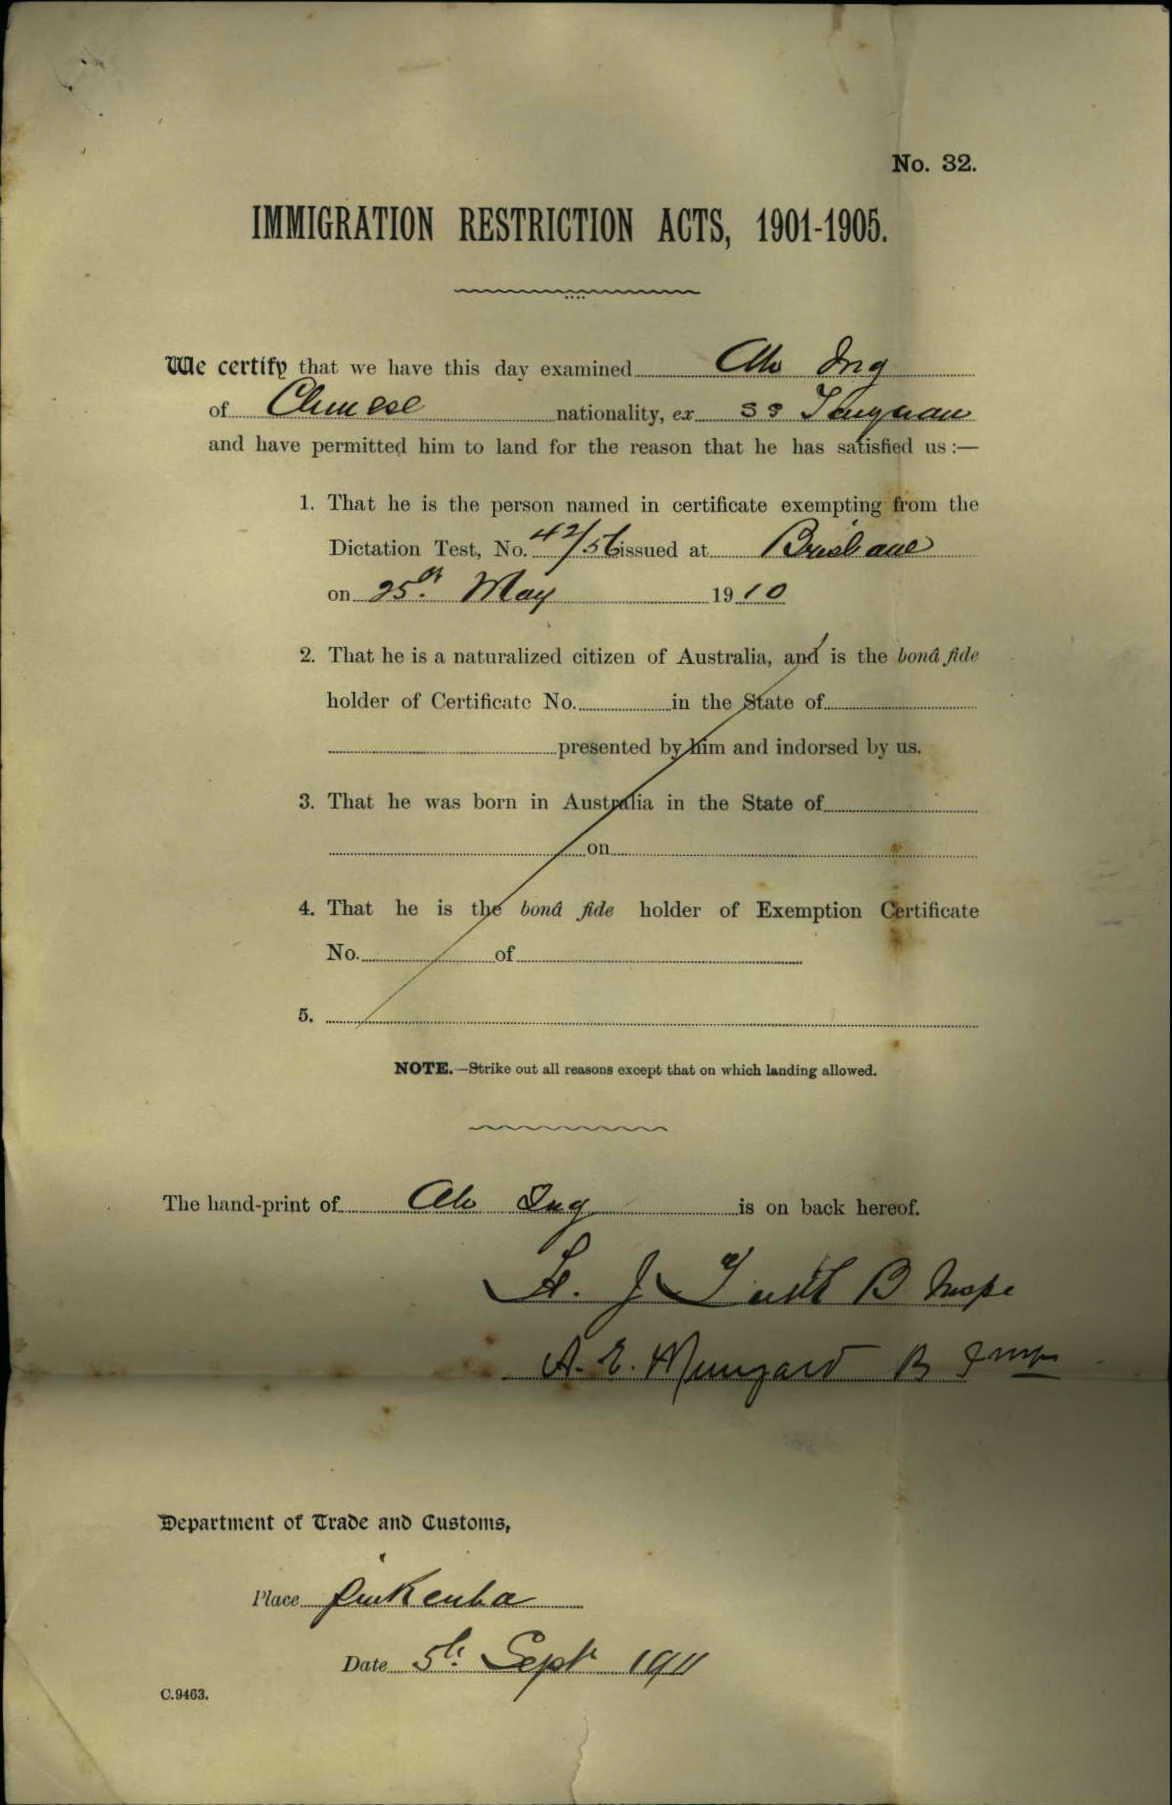 No. 32.
IMMIGRATION RESTRICTION ACTS, 1901-1905.
We certify that we have this day examined Ah Ing
of Chinese nationality, ex SS Taiyuan
and have permitted him to land for the reason that he has satisfied us :—
1. That he is the person named in certificate exempting from the
Dictation Test, No. 42/56 issued at Brisbane
on 25th May 1910
2. That he is a naturalized citizen of Australia, and is the bonâ fide
holder of Certificate No. in the State of
presented by him and indorsed by us.
3. That he was born in Australia in the State of
on
4. That he is the bonâ fide holder of Exemption Certificate
No. of
5.
NOTE.—Strike out all reasons except that on which landing allowed.
The hand-print of Ah Ing is on back hereof.
J B Inspr
A. E. B Inspr
Department of Trade and Customs,
Place Pinkenba
Date 5th Sept 1911
C.9463.